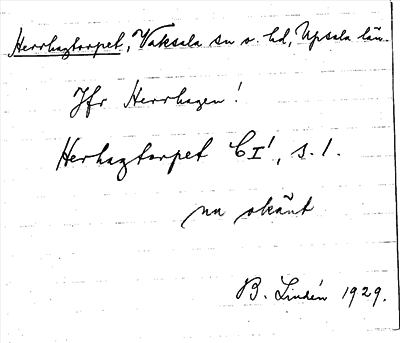 Herrhagtorpet, Vaksala sn o. hd, Upsala län.
Jfr Herrhagen!
Herhagtorpet C I¹, s. 1.
nu okänt
B. Lindén 1929.